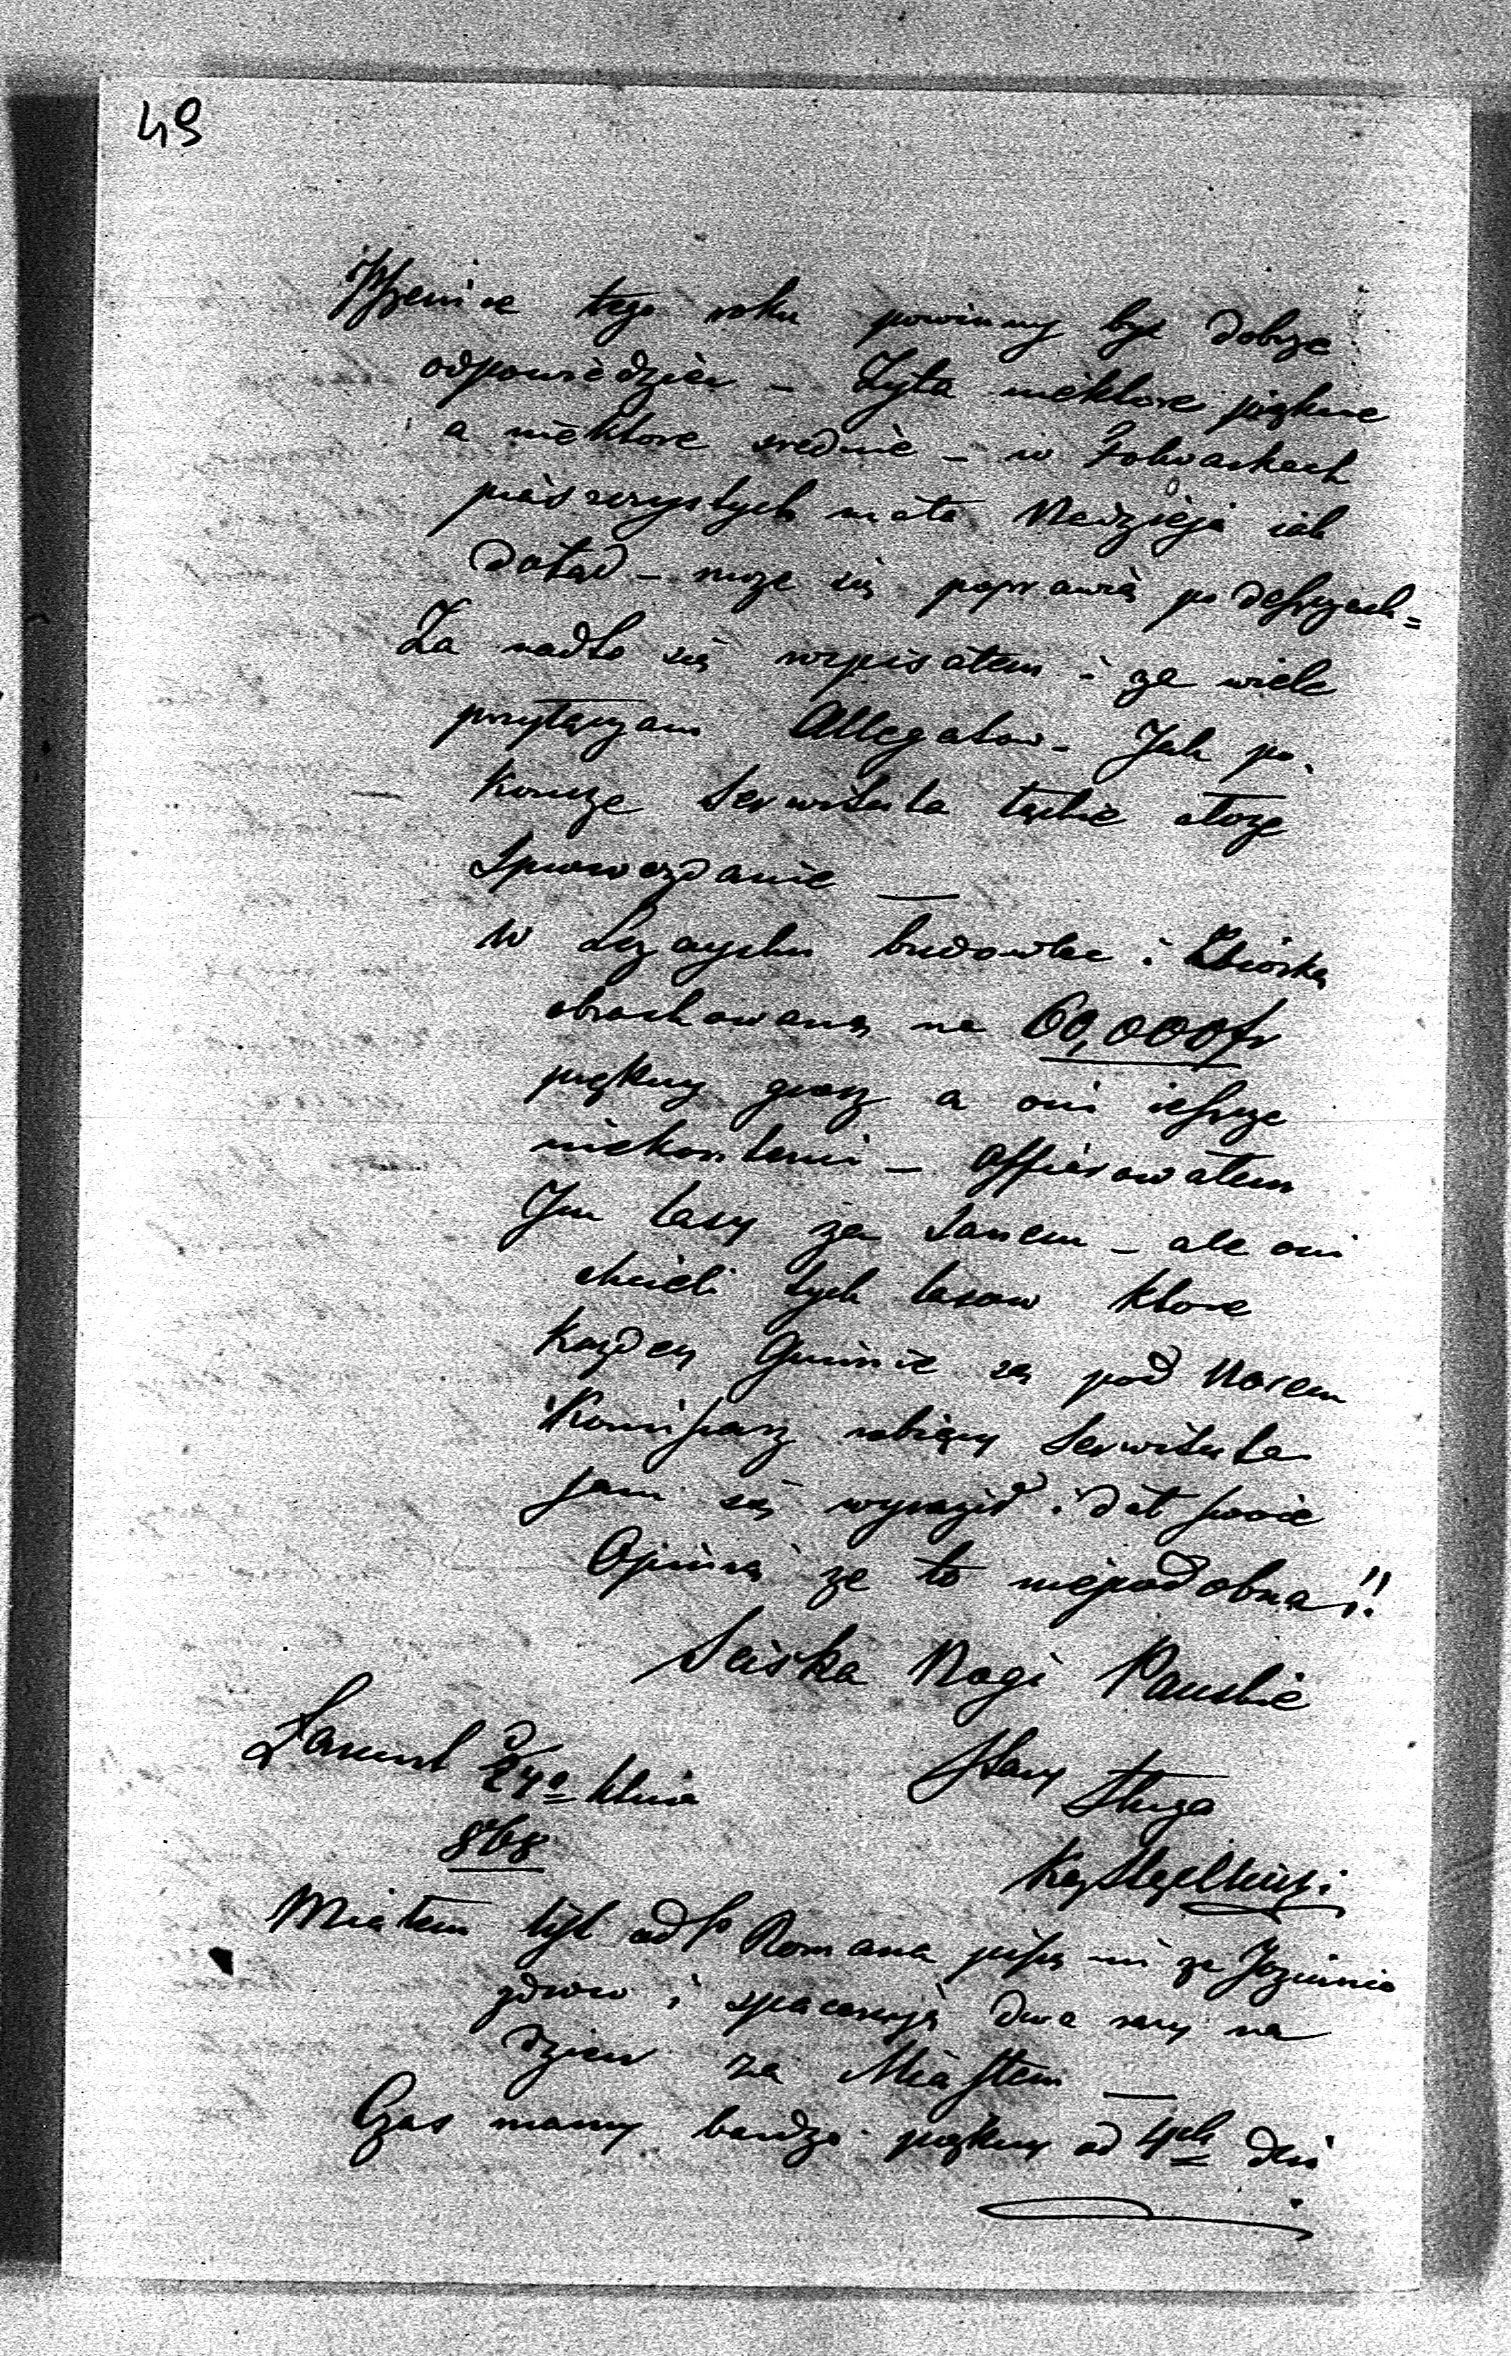 49
Pszenice tego roku powinny być dobrze
odpowiedzieć – Żyta niektore piękne
a niektore srednie – w Folwarkach
piaszczystych mała Nadzieja iak
dotąd – moze się poprawią po deszczach=
Za nadto się wypisałem i za wiele
przyłączam Allegatow – Jak po-
koncze Serwituta także złoze
Sprawozdanie —
w Lezaysku budowlae i Zbiorką
obrachowaną na 60,000 fr
piękny grosz a oni ieszcze
niekontenci – Offiarowałem
Im lasy za Sanem – ale oni
chcieli tych lasow ktore
kazdey Gminie są pod Nosem
Komissarz robiący Serwituta
sam się wyraził i dał swoie
Opinią ze to niepodobna!!
Sciska Nogi Panskie
Stary Sługa
Łancut d 24º
868
Miałem list od P Romana pisze mi ze Jozuinia
zdrow i spaceruią dwa razy na
dzien za Miastem —
Czas mamy bardzo piękny od 4ch dni